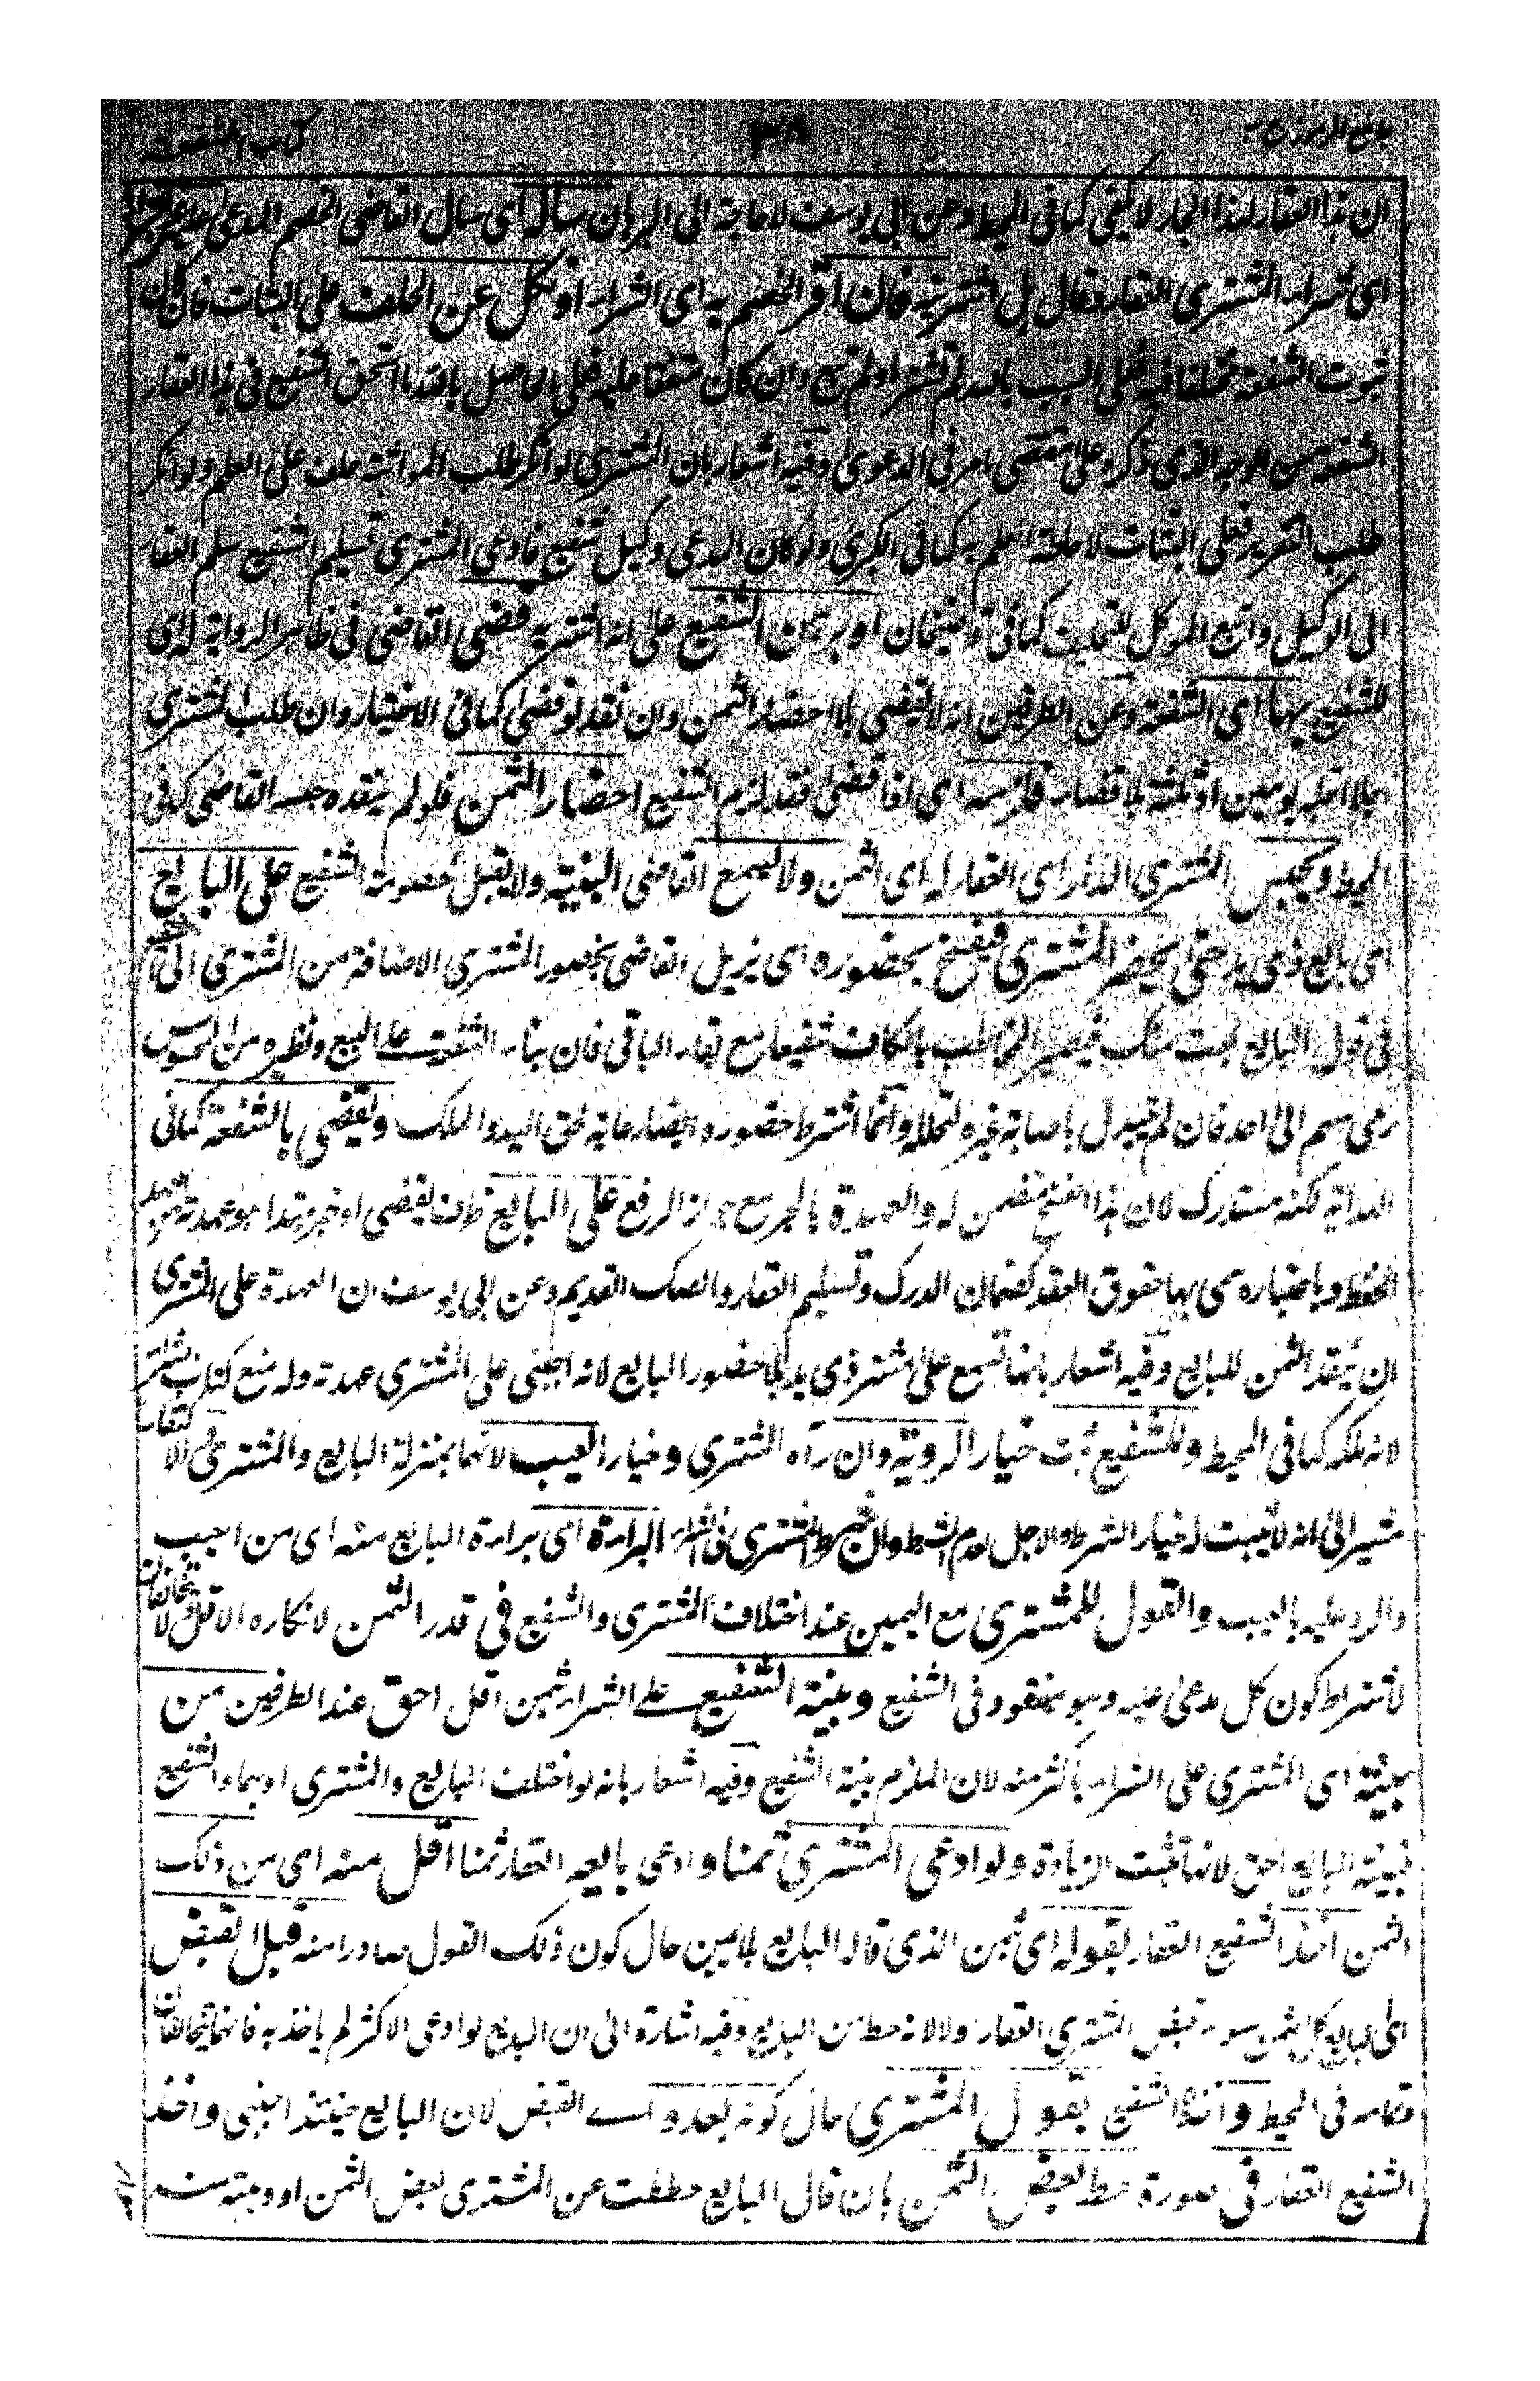 جامع الرموز ج ٣ ٣٨ كتاب الشفعة
ان هذا العقار لهذا الجار لا يكفي كما في المحيط وعن ابي يوسف لا حاجة الى البرهان سأله اى سال القاضي الخصم المدعى عليه
اى شراء المشتري العقار وقال هل اشتريته فان اقر الخصم به اى الشراء او نكل عن الحلف على البتات فان كان
ثبوت الشفعة مختلفا فيه فعلى السبب بالله لم اشتر او لم تبع وان كان متفقا عليه فعلى الحاصل بالله ما استحق الشفيع في هذا العقار
الشفعة من الوجه الذي ذكره على مقتضى ما مر في الدعوى وفيه اشعار بان المشتري لو انكر طلب المواثبة حلف على العلم ولو انكر
طلب التقرير فعلى البتات لاحاطة العلم به كما في الكبرى ولو كان المدعي وكيل شفيع فادعى المشتري تسليم الشفيع سلم العقار
الى الوكيل واتبع الموكل للتحليف كما في قاضيخان او برهن الشفيع على انه اشتريه قضى القاضي في ظاهر الرواية له اى
للشفيع بها اى الشفعة وعن الطرفين انه لا يقضي بلا احضار الثمن وان نقد لو قضى كما في الاختيار وان طلب المشتري
اجلا اجله يومين او ثلثة بلا قضاء فلزمه اى اذا قضى فقد لزم الشفيع احضار الثمن فلو لم ينقده حبسه القاضي كما في
المحيط ويحبس المشتري الدار اى العقار له اى الثمن ولا يسمع القاضي البينة ولا يقبل خصومة الشفيع على البايع
اى بايع ذى يد حتى يحضر المشتري فيفسخ بحضوره اى يزيل القاضي بحضور المشتري الاضافة من المشتري الى
في قول البايع بعت منك فيصير المخاطب بالكاف شفيعا مع بقاء الباقي فان بناء الشفعة على البيع ونظيره من المحسوس
رمى سهم الى احد فان لم يتبدل باصابة غيره وانما اشترط حضوره ايضا رعاية لحق اليد والملك ويقضي بالشفعة كما في
الهداية لكنه مستدرك لان هذا الفسخ متضمن له والعهدة بالجر مع جواز الرفع على البايع
الخط وباعتباره سمى بها حقوق العقد كضمان الدرك وتسليم العقار والصك القديم وعن ابي يوسف ان العهدة على المشتري
ان ينقد الثمن للبايع وفيه اشعار بانها تسمع على مشتر ذى يد بلا حضور البايع لانه اجنبي على المشتري عهدته وله منع كتاب الشراء
لانه ملكه كما في المحيط وللشفيع ثبت خيار الروية وان رآه المشتري وخيار العيب لانهما بمنزلة البايع والمشتري وفي الاكتفاء
مشير الى انه لا يثبت له خيار الشرط والاجل لعدم الشرط وان شرط المشتري البراءة اى براءة البايع منه اى من العيب
والرد عليه بالعيب والقول للمشتري مع اليمين عند اختلاف المشتري والشفيع في قدر الثمن لانكاره الاقل ولا يتحالفان
لاشتراط كون كل مدعى عليه وهو مفقود في الشفيع وبينة الشفيع على الشراء بثمن اقل احق عند الطرفين من
بينته اى المشتري على الشراء باكثر منه لان الملزم بينة الشفيع وفيه اشعار بانه لو اختلف البايع والمشتري او هما والشفيع
فبينة البايع احق لانها تثبت الزيادة ولو ادعى المشتري ثمنا وادعى بايعه العقار ثمنا اقل منه اى من ذلك
الثمن اخذ الشفيع العقار بقوله اى بثمن الذي قاله البايع بلا يمين حال كون ذلك القول صادرا منه قبل القبض
اى البايع كل الثمن سواء قبض المشتري العقار او لا لانه حط من البايع وفيه اشارة الى ان البايع لو ادعى الاكثر لم ياخذ به فانهما يتحالفان
في المحيط واخذ الشفيع بقول المشتري حال كونه بعده اى القبض لان البايع حينئذ اجنبي واخذ
الشفيع العقار في صورة حط بعض الثمن بان قال البايع حططت عن المشتري بعض الثمن او وهبته منه